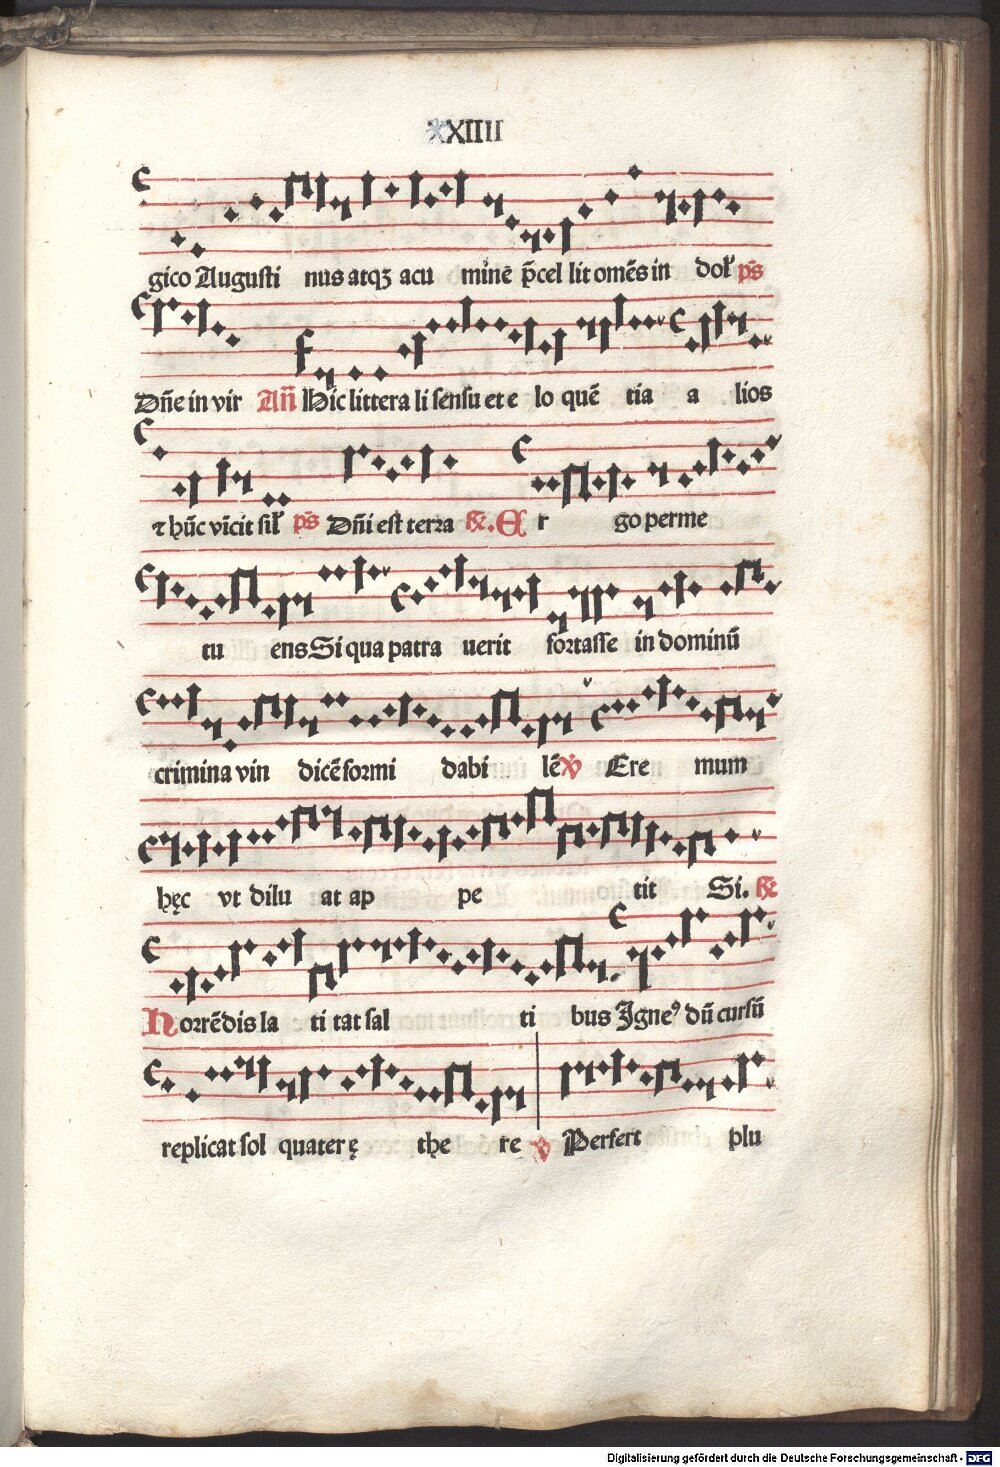 XXIIII
gico Augusti nus atqꝫ acu minē p̄cel lit omēs in dol' pš
Dn̄e in vir An̄ Hic littera li sensu et e lo quē tia a lios
⁊ hūc vīcit sil' pš Dn̄i est terra ℟. Er go perme
tu ens Si qua patra uerit fortasse in dominū
crimina vin dicē formi dabi lē ℣ Ere mum
hęc vt dilu at ap pe tit Si. ℟
Horrēdis la ti tat sal ti bus Igneꝰ dū cursū
replicat sol quater ę the re ℣ Perfert plu
Digitalisierung gefördert durch die Deutsche Forschungsgemeinschaft - DFG